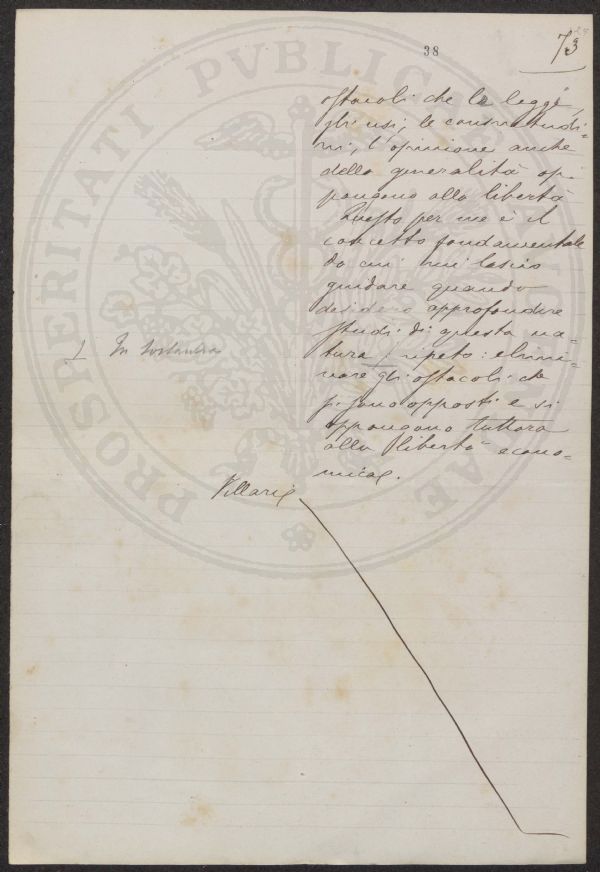 38
73
ostacoli che la legge,
gli usi, le consuetudi=
ni, l'opinione anche
della generalità op=
pongono alla libertà
Questo per me è il
concetto fondamentale
da cui mi lascio
guidare quando
desidero approfondire
studi di questa na=
1 In sostanza
tura / ripeto: elimi=
nare gli ostacoli che
si sono opposti e si
oppongono tuttora
alla libertà econo=
mica.
Villari
PROSPERITATI PVBLICAE